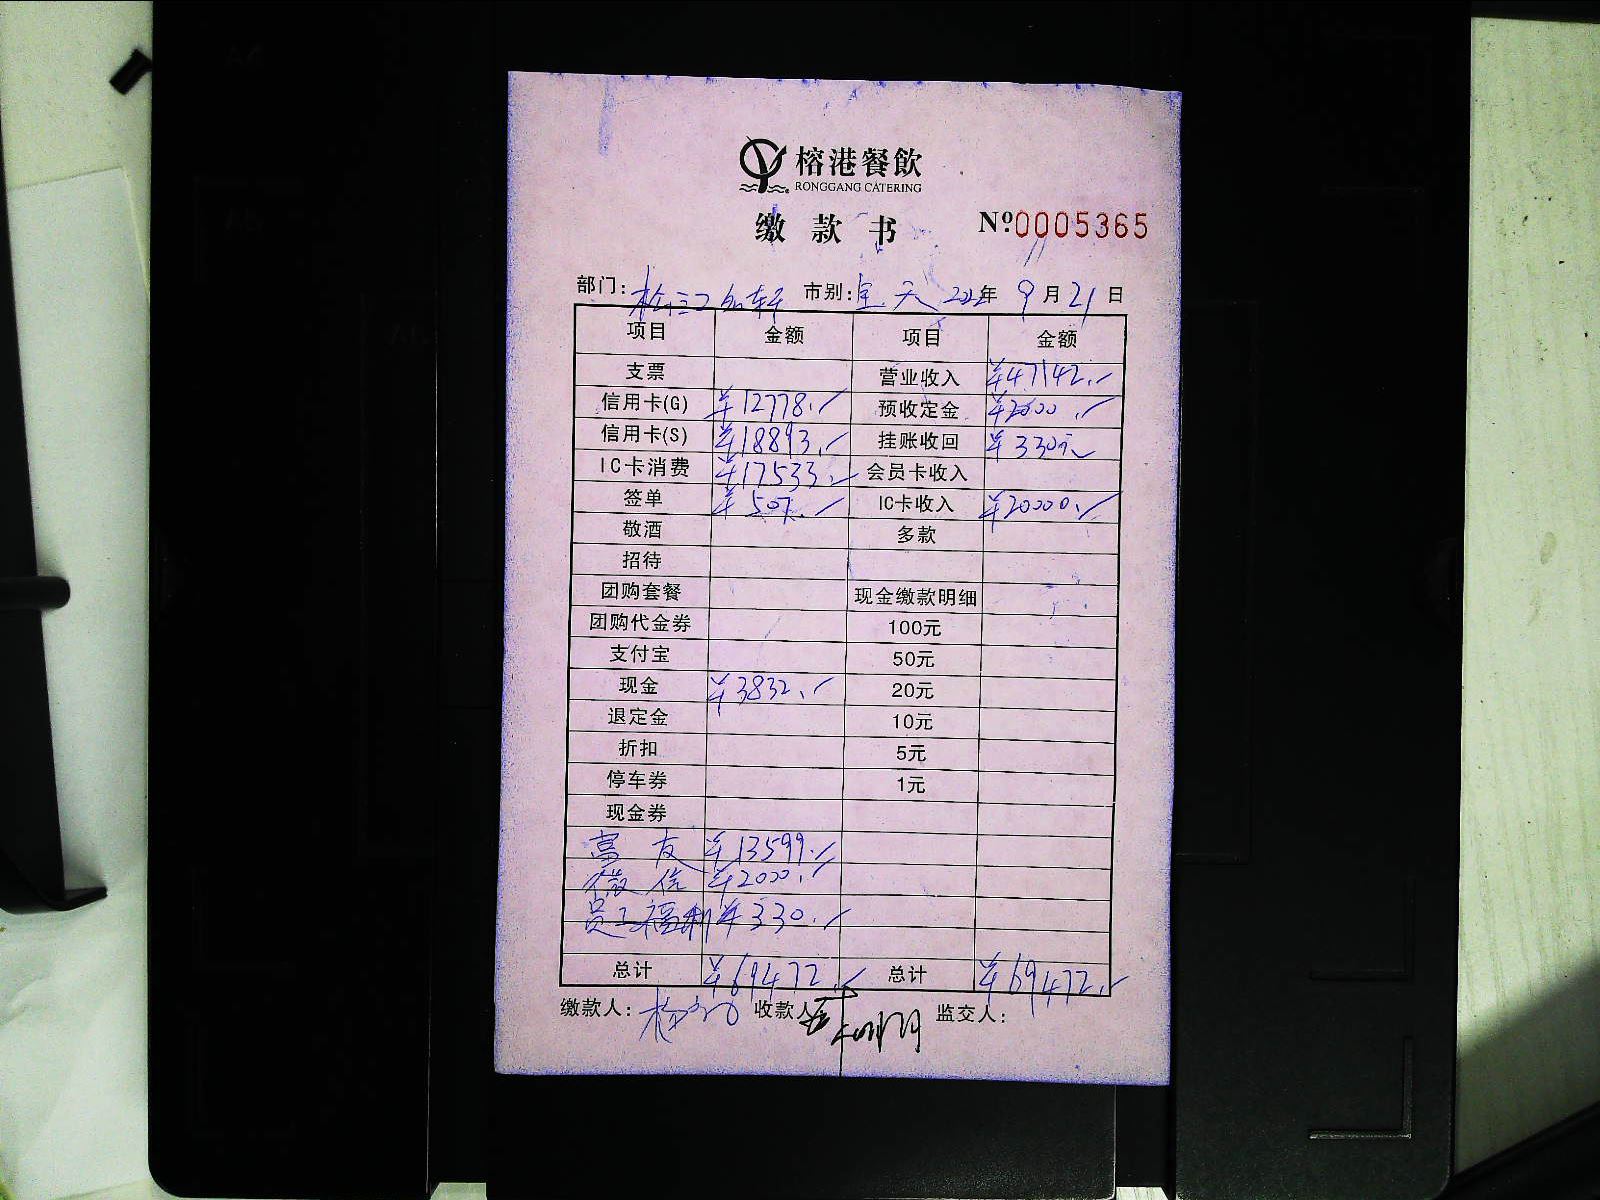 榕港餐飲
RONGGANG CATERING
缴款书 Nº0005365
部门: 市别: 全天 2022年 9月21日
项目 金额 项目 金额
支票 营业收入 ¥47142.
信用卡(G) ¥12778. 预收定金 ¥2000.
信用卡(S) ¥18893. 挂账收回 ¥330元
IC卡消费 ¥17533. 会员卡收入
签单 ¥507. IC卡收入 ¥20000.
敬酒 多款
招待
团购套餐 现金缴款明细
团购代金券 100元
支付宝 50元
现金 ¥3832. 20元
退定金 10元
折扣 5元
停车券 1元
现金券
富友 ¥13599.
微信 ¥2000.
员工福利 ¥330.
总计 ¥69472. 总计 ¥69472.
缴款人: 收款人 监交人: